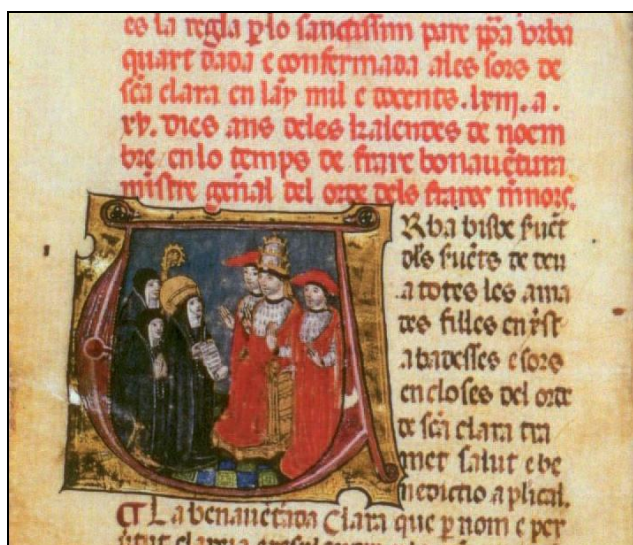 es la regla p lo sanctissim pare ppa vrba
quart dada e confermada ales sors de
scā clara en lāy mil e docents. lxiii. a.
xv. dies ans deles kalendes de noem
bre. en lo temps de frare bonauētura
mistre geñal del orde dels frares menors.
Rba bisbe suēt
dls suēts de deu
a totes les ama
des filles en xst
abadesses e sors
encloses del orde
de scā clara tra
met salut e be
nedictio aplical.
La benauētada Clara que p nom e per